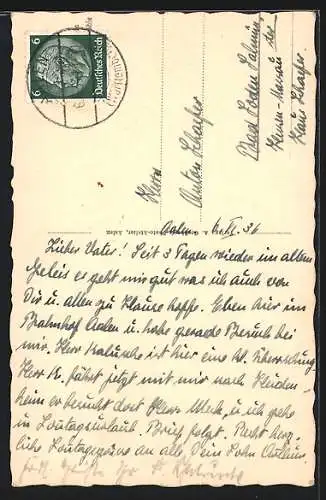 6
Deutsches Reich
Herrn
Anton Schäfer
Bad Soden Salmün.
Hessen-Nassau
Haus Schäfer
Aalen, 36
Lieber Vater! Seit 3 Tagen wieder im alten
Geleis es geht mir gut was ich auch von
Dir u. allen zu Hause hoffe. Eben hier im
Bahnhof Aalen u. habe gerade Besuch bei
mir. Herr ist hier eine kl. Überraschung
Herr K. fährt jetzt mit mir nach Heiden-
heim er besucht dort Herr u. ich gehe
in Sontagsurlaub. Brief folgt. Recht herz-
liche Sontagsgrüsse an alle Dein Sohn